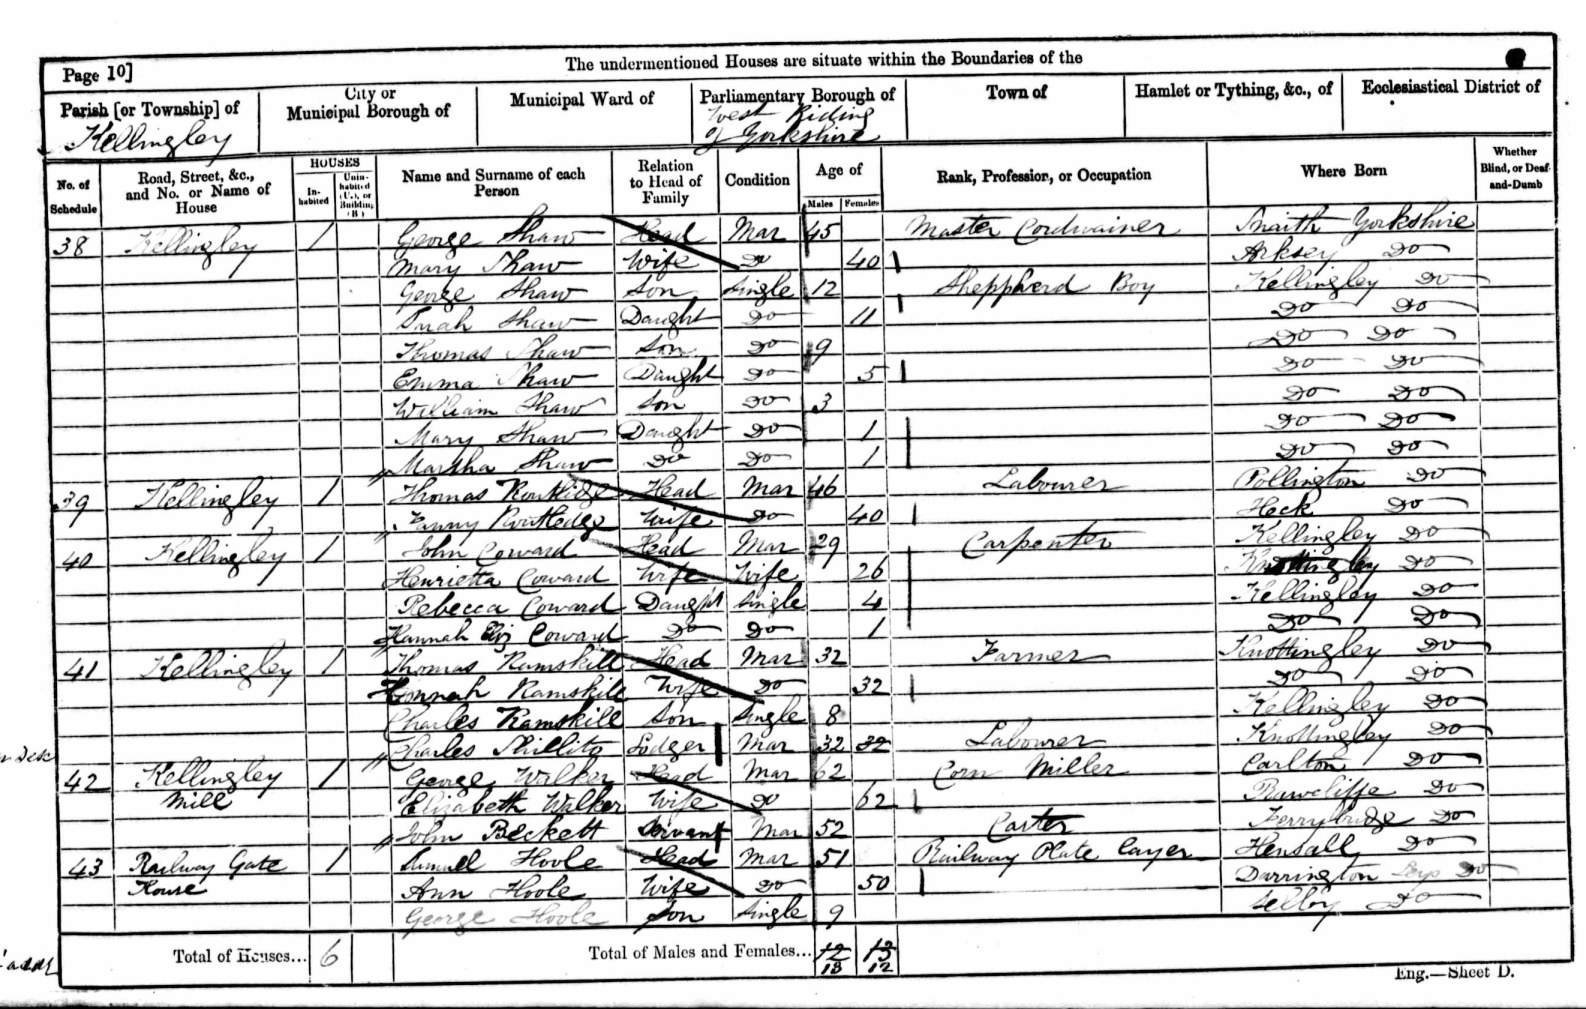 Page 10]
The undermentioned Houses are situate within the Boundaries of the
Parish [or Township] of
City or Municipal Borough of
Municipal Ward of
Parliamentary Borough of
Town of
Hamlet or Tything, &c., of
Ecclesiastical District of
Kellingley
West Riding of Yorkshire
No. of Schedule
Road, Street, &c., and No. or Name of House
HOUSES
In-habited
Unin-habited (U.), or Building (B)
Name and Surname of each Person
Relation to Head of Family
Condition
Age of
Males
Females
Rank, Profession, or Occupation
Where Born
Whether Blind, or Deaf-and-Dumb
38 Kellingley 1 George Shaw Head Mar 45 Master Cordwainer Snaith Yorkshire
Mary Shaw Wife Do 40 Arksey Do
George Shaw Son Single 12 Shepherd Boy Kellingley Do
Sarah Shaw Daught Do 11 Do Do
Thomas Shaw Son Do 9 Do Do
Emma Shaw Daught Do 5 Do Do
William Shaw Son Do 3 Do Do
Mary Shaw Daught Do 1 Do Do
Martha Shaw Do Do 1 Do Do
39 Kellingley 1 Thomas Routlidge Head Mar 46 Labourer Pollington Do
Fanny Routledge Wife Do 40 Heck Do
40 Kellingley 1 John Coward Head Mar 29 Carpenter Kellingley Do
Henrietta Coward Wife Wife 26 Knottingley Do
Rebecca Coward Daught Single 4 Kellingley Do
Hannah Eliz Coward Do Do 1 Do Do
41 Kellingley 1 Thomas Ramskill Head Mar 32 Farmer Knottingley Do
Hannah Ramskill Wife Do 32 Do Do
Charles Ramskill Son Single 8 Kellingley Do
Charles Shillito Lodger Mar 32 32 Labourer Knottingley Do
42 Kellingley Mill 1 George Walker Head Mar 62 Corn Miller Carlton Do
Elizabeth Walker Wife Do 62 Rawcliffe Do
John Beckett Servant Mar 52 Carter Ferrybridge Do
43 Railway Gate House 1 Samuel Hoole Head Mar 51 Railway Plate layer Hensall Do
Ann Hoole Wife Do 50 Darrington Do
George Hoole Son Single 9 Selby Do
Total of Houses... 6
Total of Males and Females... 12 13
13 12
Eng.—Sheet D.